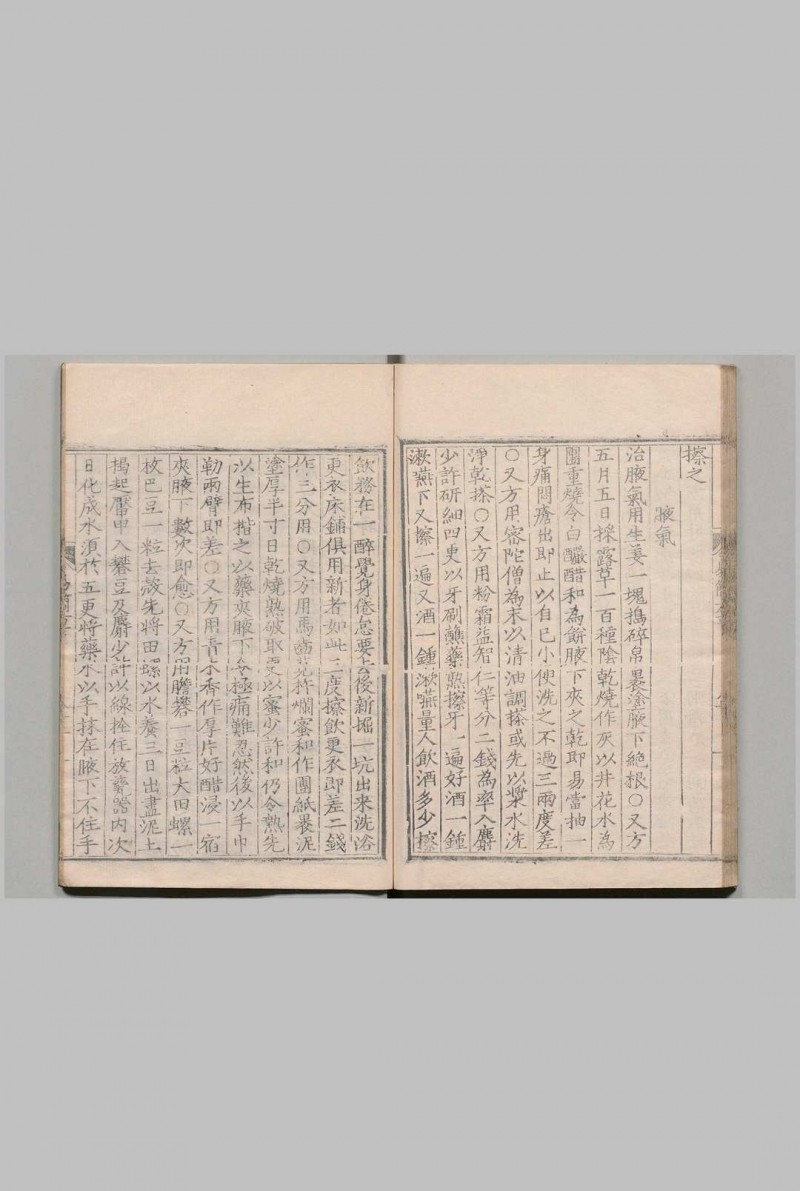 擦之
腋氣
治腋氣用生姜一塊搗碎帛裹塗腋下絶根○又方
五月五日採露草一百種陰乾燒作灰以井花水為
團重燒令白釅醋和為餠腋下夾之乾即易當抽一
身痛悶瘡出即止以自已小便洗之不過三兩度差
○又方用密陀僧為末以清油調搽或先以漿水洗
淨乾搽○又方用粉霜益智仁等分二錢為率入麝
少許研細四更以牙刷蘸藥熟擦牙一遍好酒一鍾
漱嚥下又擦一遍又酒一鍾漱嚥量人飲酒多少擦
飲務在一醉覺身倦怠要去後新掘一坑出來洗浴
更衣床鋪俱用新者如此三度擦飲更衣即差二錢
作三分用○又方用馬齒莧杵爛蜜和作團紙裹泥
塗厚半寸日乾燒熟破取更以蜜少許和仍令熱先
以生布揩之以藥夾腋下令極痛難忍然後以手巾
勒兩臂即差○又方用青木香作厚片好醋浸一宿
夾腋下數次即愈○又方用膽礬一豆粒大田螺一
枚巴豆一粒去殼先將田螺以水養三日出盡泥土
揭起靨甲入礬豆及麝少許以線拴住放磁器內次
日化成水須於五更將藥水以手抹在腋下不住手